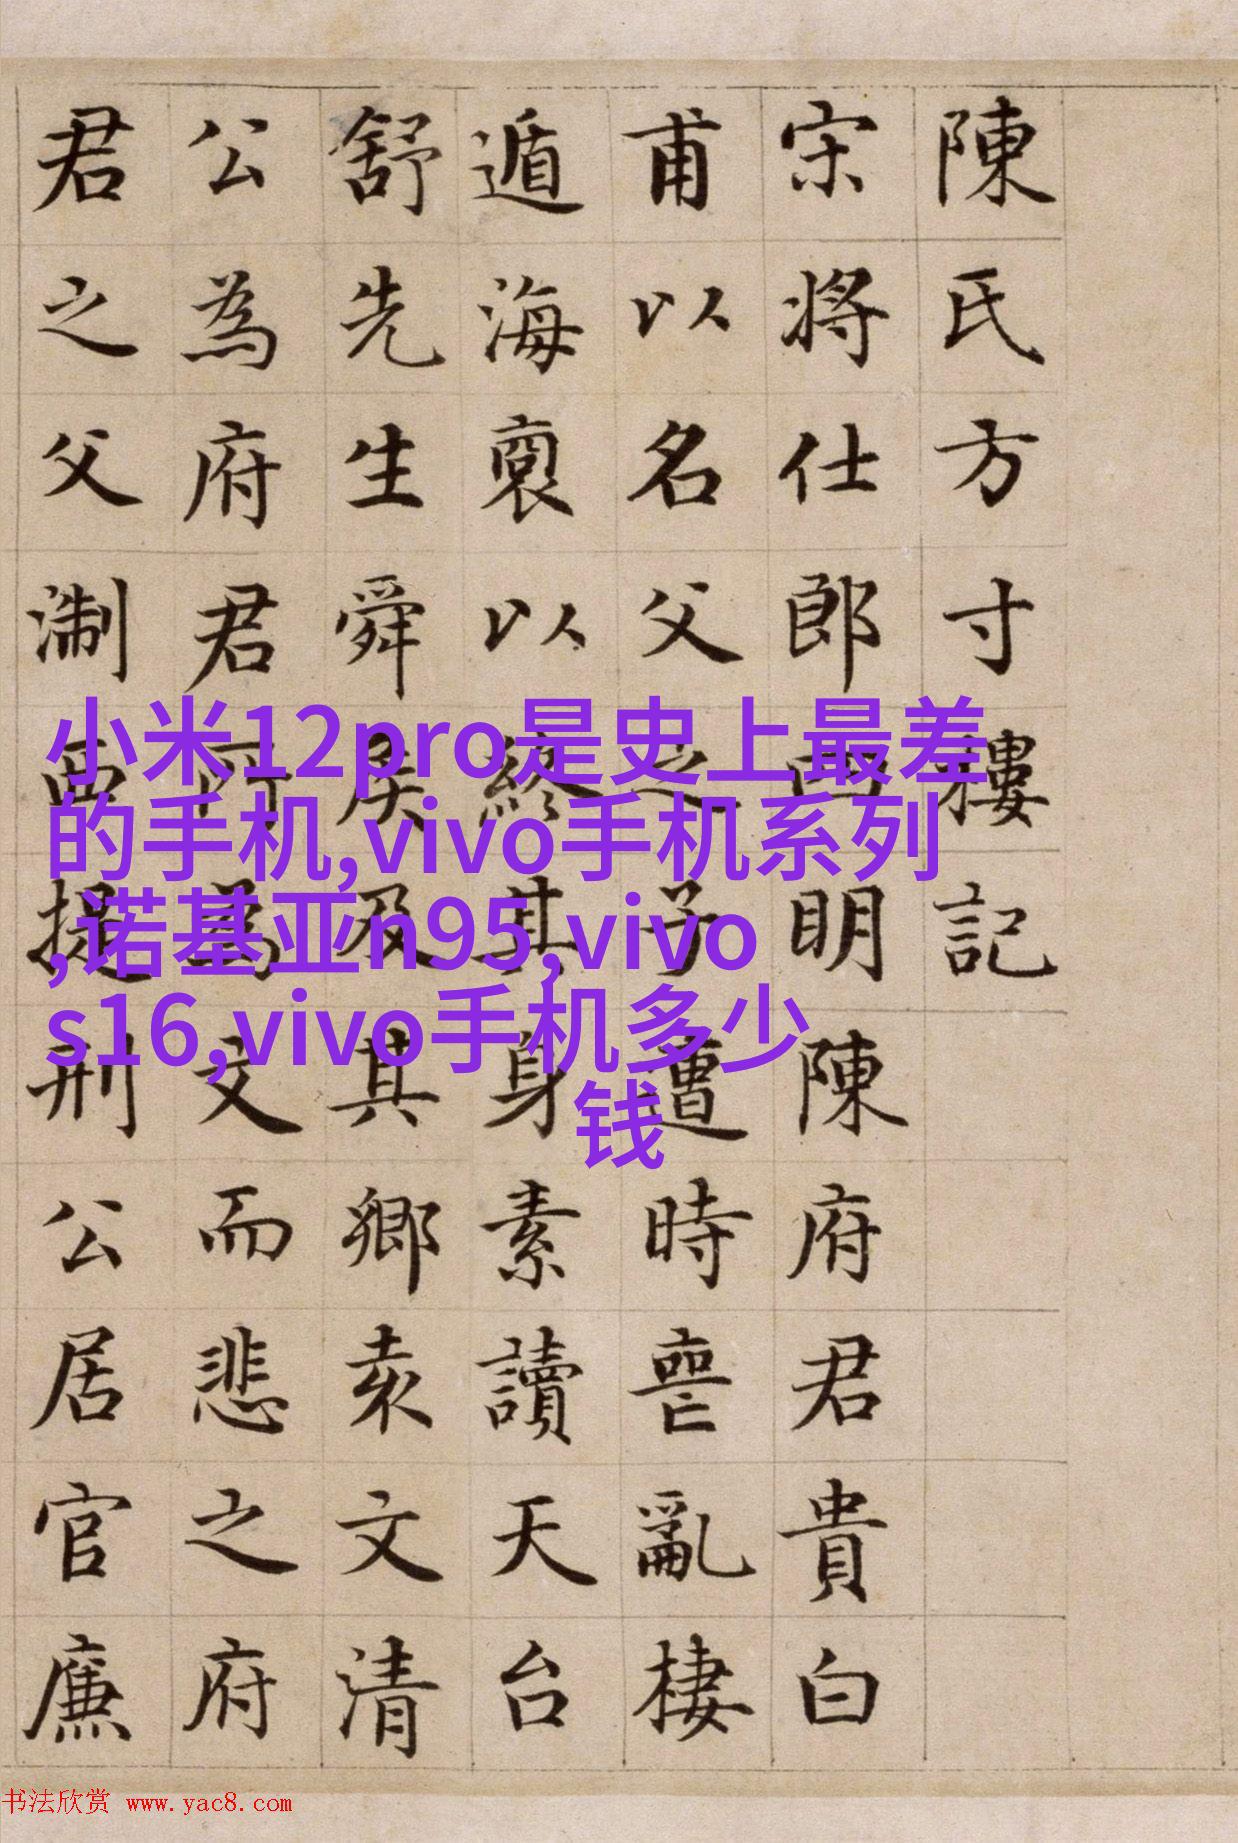 陳氏方寸樓記
宋將仕郎四明陳府君貴白
甫以名父之子遭時喪亂棲
遁海裔以終其身素讀天台
舒先生舜侯及其鄉袁文清
公為府君所為文而悲之府
君之父淛西提刑公居官廉
小米12pro是史上最差
的手机,vivo手机系列
,诺基亚n95,vivo
s16,vivo手机多少
钱
书法欣赏 www.yac8.com